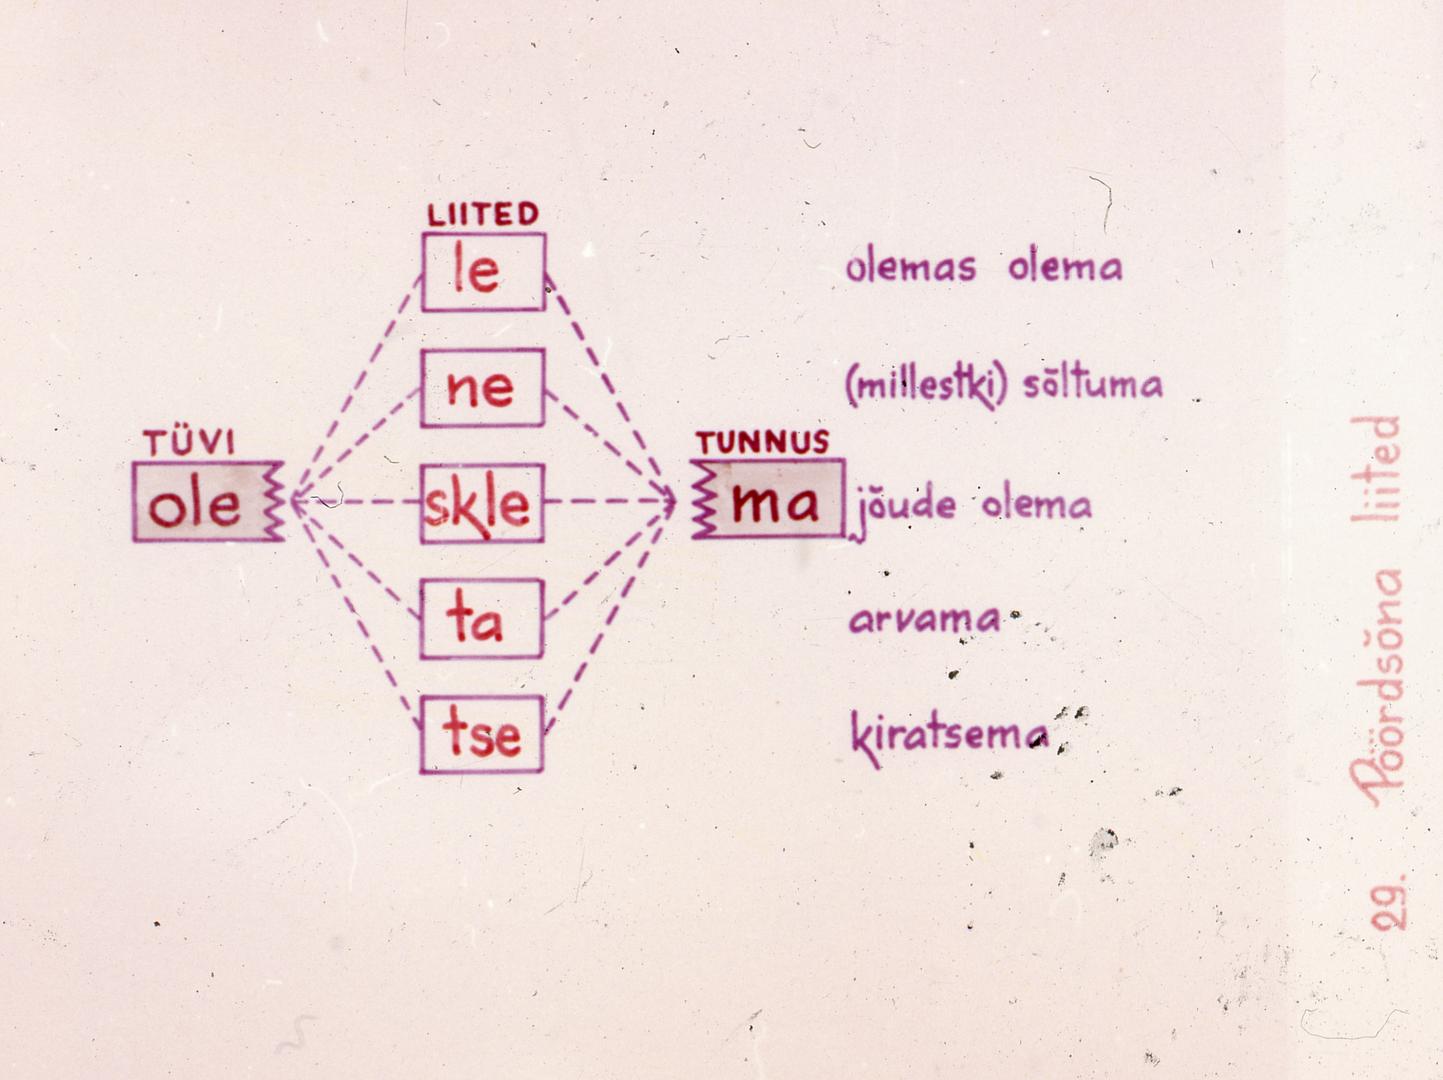 LIITED
le
olemas olema
ne
(millestki) sõltuma
TÜVI
ole
skle
TUNNUS
ma
jõude olema
ta
arvama
tse
kiratsema
29. Pöördsõna liited